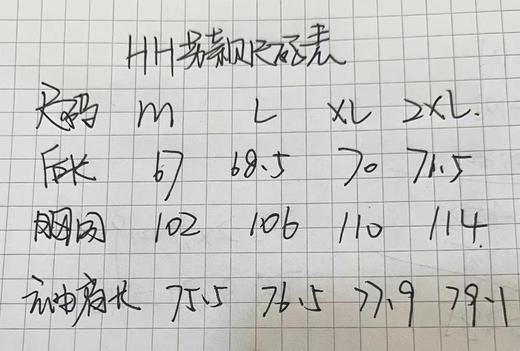 HH男款尺码表
尺码 M L XL 2XL.
后长 67 68.5 70 71.5
胸围 102 106 110 114
肩长 75.5 76.5 77.9 79.1